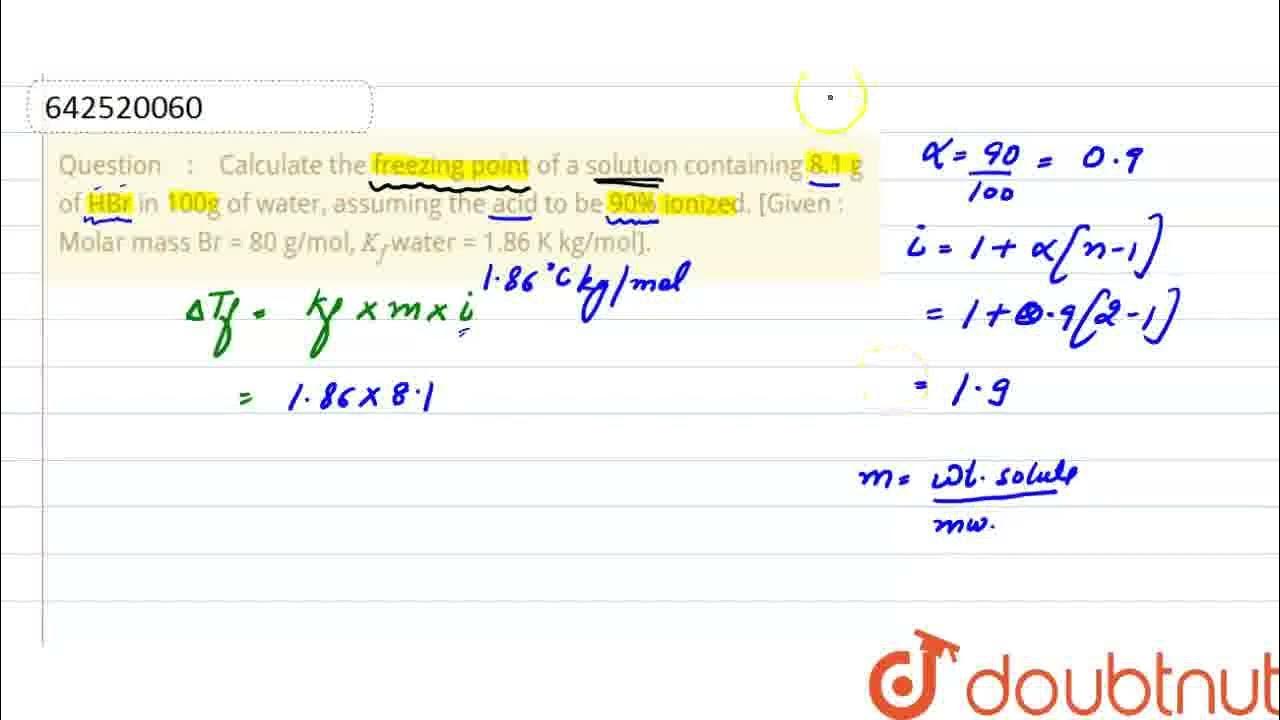 642520060
Question : Calculate the freezing point of a solution containing 8.1 g
of HBr in 100g of water, assuming the acid to be 90% ionized. [Given :
Molar mass Br = 80 g/mol, Kf water = 1.86 K kg/mol].
1.86°C kg/mol
ΔTf = Kf × m × i
= 1.86 × 8.1
α = 90/100 = 0.9
i = 1 + α[n-1]
= 1 + 0.9[2-1]
= 1.9
m = wt. solute
mw.
doubtnut